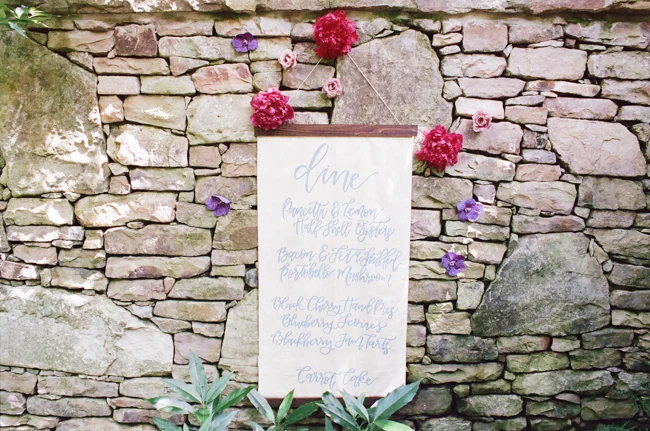 dine
Pancetta & Lemon
Half Shell Oysters
Bacon &
Portobello Mushroom
Black Cherry Hand Pies
Blueberry Scones
Blackberry Jam Tarts
Carrot Cake